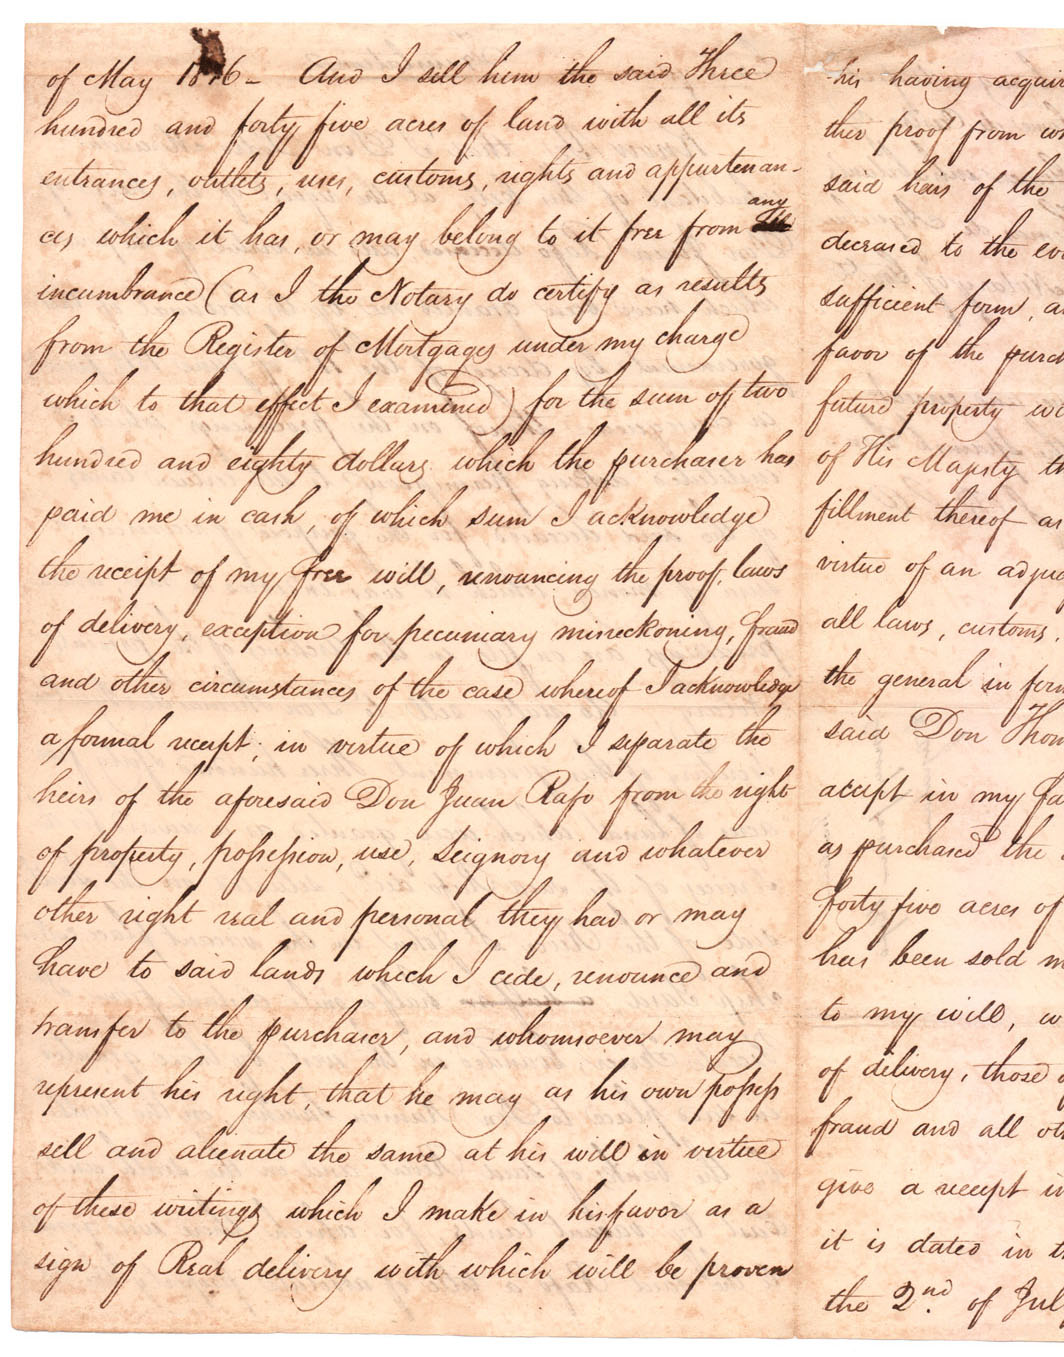 of May 18 6 - And I sell him the said Three
hundred and forty five acres of land with all its
entrances, outlets, uses, customs, rights and appurtenan-
ces which it has, or may belong to it free from any
incumbrance (as I the Notary do certify as results
from the Register of Mortgages under my charge
which to that effect I examined) for the sum of two
hundred and eighty dollars which the purchaser has
paid me in cash, of which sum I acknowledge
the receipt of my free will, renouncing the proof, laws
of delivery, exception for pecuniary misreckoning, fraud
and other circumstances of the case whereof I acknowledge
a formal receipt; in virtue of which I separate the
heirs of the aforesaid Don Juan Rafo from the right
of property, possession, use, Seignory and whatever
other right real and personal they had or may
have to said lands which I cede, renounce and
transfer to the purchaser, and whomsoever may
represent his right, that he may as his own possess
sell and alienate the same at his will in virtue
of these writings which I make in his favor as a
sign of Real delivery with which will be proven
his having acquir
ther proof from w
said heirs of the
deceased to the
sufficient form, a
favor of the purch
future property wi
of His Majesty th
fillment thereof a
virtue of an adju
all laws, customs,
the general in form
said Don Thom
accept in my fa
as purchased the
forty five acres of
has been sold m
to my will, w
of delivery, those
fraud and all ot
give a receipt i
it is dated in t
the 2nd. of July